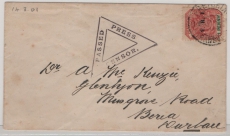 12.8.01
PASSED PRESS CENSOR.
Dr A. McKenzie,
Glenlyon,
Musgrave Road
Berea
Durban